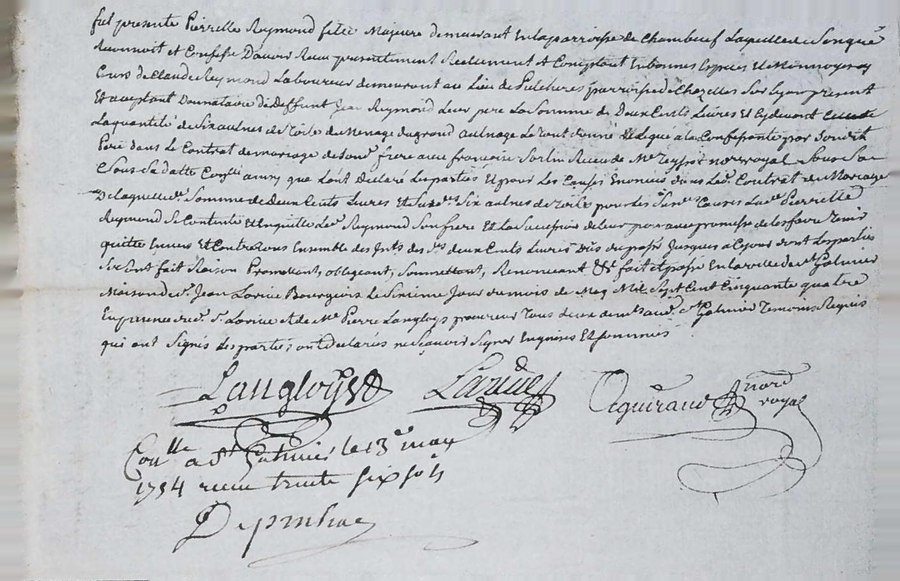 fut presente Pierrette Reymond fille Majeure demeurant En la parroisse de Chambeuf Laquelle de Son gré
Reconnoit et Confesse D'avoir Receu presentement Reellement et Comptant En bonnes Especes Et Monnoyes du
Cours de Claude Reymond Laboureur demeurant au Lieu de parroisse de Chazelles Sur Lyon present
Et aceptant Donnataire de Deffunt Jean Reymond Leur pere La Somme de Deux Cents Livres et Cy devant
La quantité de Six aulnes de Toile de Menage du grond aulnage Le tout donné Et Legué a la Confessante par Sondit
Pere dans Le Contrat de mariage de Son d. frere avec françoise Sorlin Receu de Me no.re royal Sous Sa
Sous Sa datte ainsy que L'ont Declaré Les parties Et pour Les Causes Enoncées dans Led. Contrat de Mariage
De Laquelle d. Somme de deux Cents Livres et des d. Six aulnes de Toile pour Les Causes Lad. Pierrette
Reymond Se Contente Et En quitte Led. Reymond Son frere Et La Succession de Leur pere avec promesse de Les faire Tenir
quitte Envers Et Contre tous Ensemble des Ints. des d. deux Cents Livres Dûs du passé Jusques a Ce jour dont Les parties
Se Sont fait Raison Promettant, obligeant, Soumettant, Renonceant &c fait et passé En la ville de St Galmier
Maison de Sr. Jean Larive Bourgeois Le Sixieme Jour du mois de May Mil Sept Cent Cinquante quatre
En presence dud. Sr Larive et de Me Pierre Langloys procureur Tous deux dem.t aud. St Galmier Temoins Requis
qui ont Signés Les parties ont Declarées ne Sçavoir Signer Enquises Et Sommées
Langloys Larive no.re royal
Con.lle a St Galmier le 13e may
1754 receu trente six sols